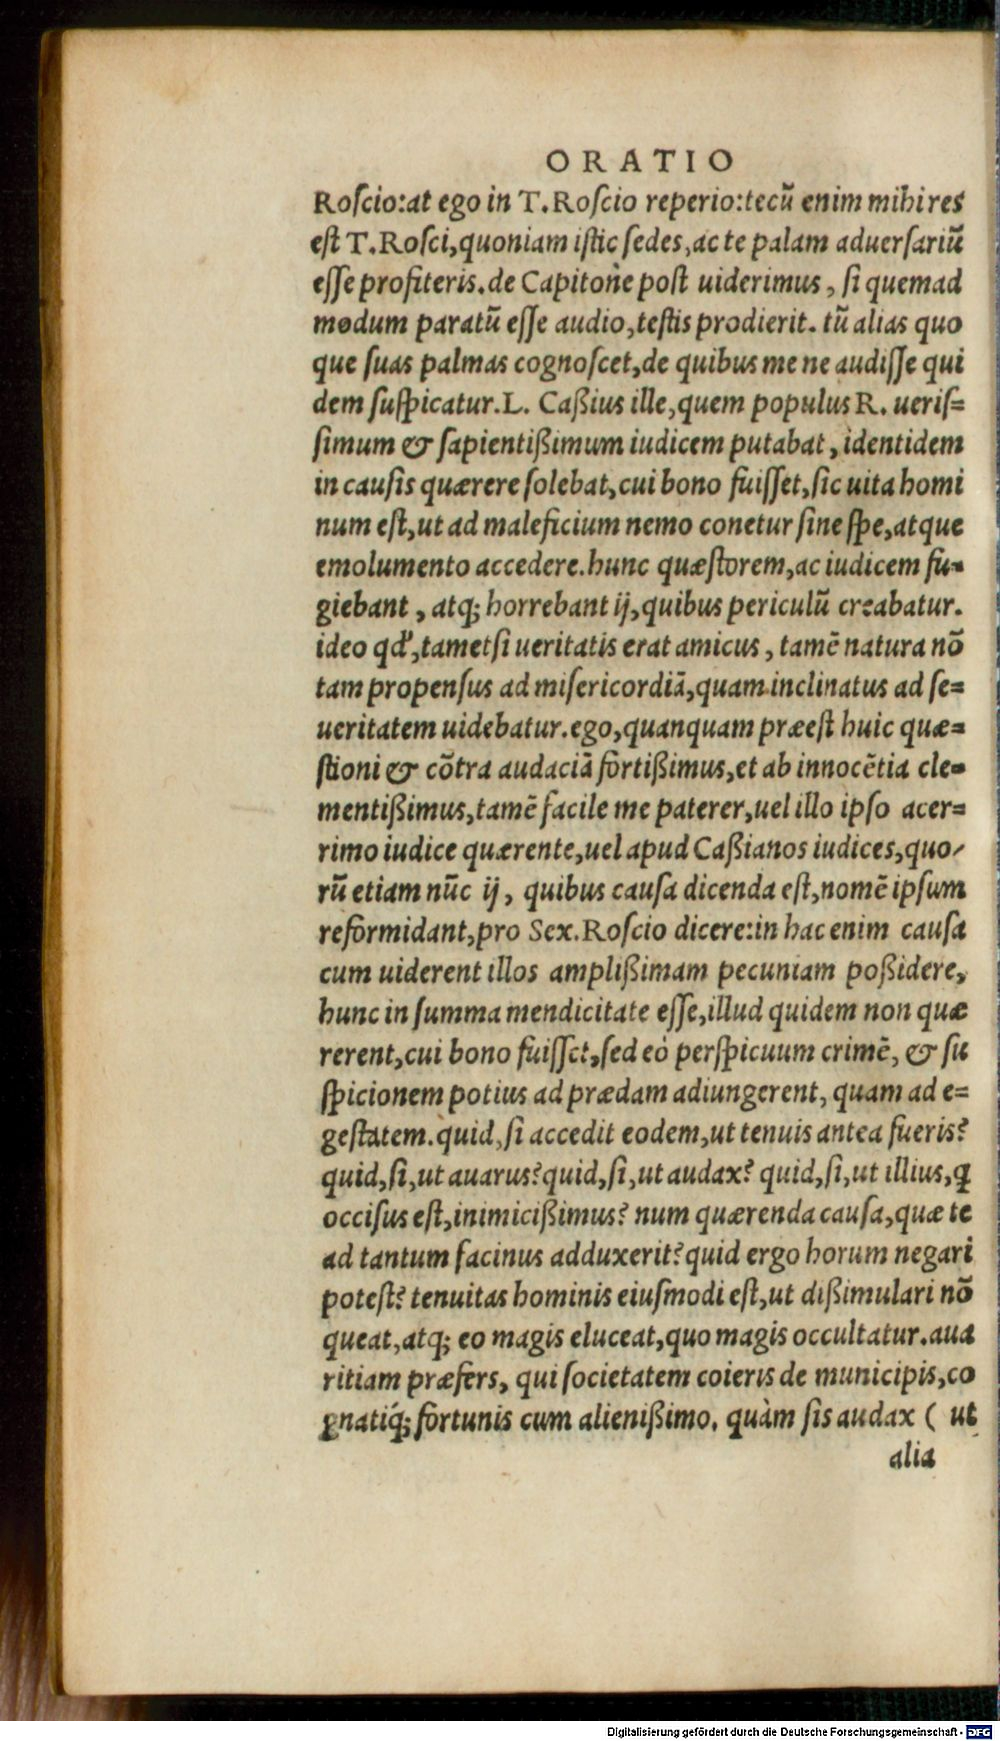 ORATIO
Roſcio:at ego in T.Roſcio reperio:tecũ enim mihi res
eſt T.Roſci,quoniam iſtic ſedes,ac te palam aduerſariũ
eſſe profiteris.de Capitone poſt uiderimus, ſi quemad
modum paratũ eſſe audio,teſtis prodierit. tũ alias quo
que ſuas palmas cognoſcet,de quibus me ne audiſſe qui
dem ſuſpicatur.L. Caßius ille,quem populus R. ueriſ=
ſimum & ſapientißimum iudicem putabat, identidem
in cauſis quærere ſolebat,cui bono fuiſſet,ſic uita homi
num eſt,ut ad maleficium nemo conetur ſine ſpe,atque
emolumento accedere.hunc quæſtorem,ac iudicem fu=
giebant, atq; horrebant ij,quibus periculũ creabatur.
ideo qd',tametſi ueritatis erat amicus, tamẽ natura nõ
tam propenſus ad miſericordiã,quam inclinatus ad ſe=
ueritatem uidebatur.ego,quanquam præeſt huic quæ=
ſtioni & cõtra audaciã fortißimus,et ab innocẽtia cle=
mentißimus,tamẽ facile me paterer,uel illo ipſo acer=
rimo iudice quærente,uel apud Caßianos iudices,quo/
rũ etiam nũc ij, quibus cauſa dicenda eſt,nomẽ ipſum
reformidant,pro Sex.Roſcio dicere:in hac enim cauſa
cum uiderent illos amplißimam pecuniam poßidere,
hunc in ſumma mendicitate eſſe,illud quidem non quæ
rerent,cui bono fuiſſet,ſed eò perſpicuum crimẽ, & ſu
ſpicionem potius ad prædam adiungerent, quam ad e=
geſtatem.quid,ſi accedit eodem,ut tenuis antea fueris?
quid,ſi,ut auarus?quid,ſi,ut audax? quid,ſi,ut illius,ꝗ
occiſus eſt,inimicißimus? num quærenda cauſa,quæ te
ad tantum facinus adduxerit?quid ergo horum negari
poteſt? tenuitas hominis eiuſmodi eſt,ut dißimulari nõ
queat,atq; eo magis eluceat,quo magis occultatur.aua
ritiam præfers, qui ſocietatem coieris de municipis,co
gnatiq́; fortunis cum alienißimo. quàm ſis audax ( ut
alia
Digitalisierung gefördert durch die Deutsche Forschungsgemeinschaft - DFG